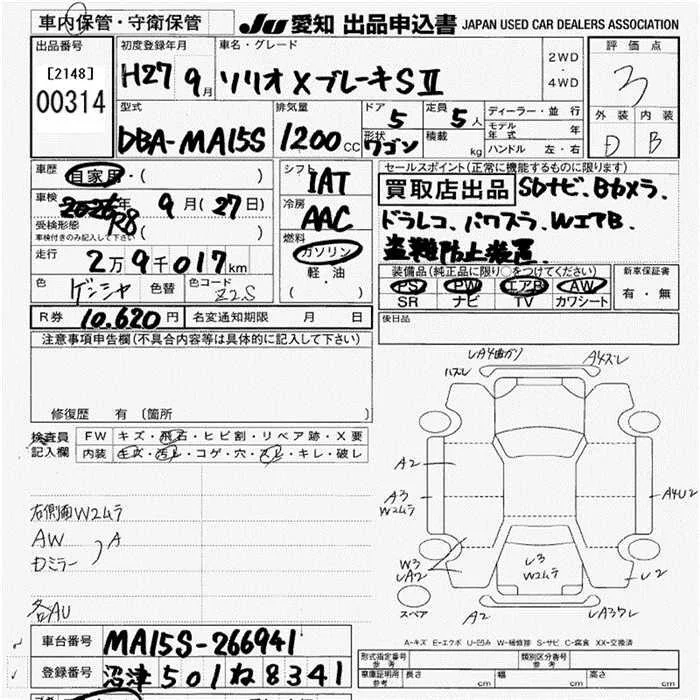 車内保管・守衛保管
JU 愛知 出品申込書 JAPAN USED CAR DEALERS ASSOCIATION
出品番号 初度登録年月 車名・グレード 評価点
[2148]
00314
H27 9月 ソリオ X ブレーキSⅡ 2WD・4WD 3
型式 排気量 ドア 5 定員 5人 ディーラー・並行 外装 内装
DBA-MA15S 1200cc 形状 ワゴン 積載 kg モデル年式 年 ハンドル 左・右 D B
車歴 自家用・( )
シフト IAT
セールスポイント(正常に機能するものに限ります)
買取店出品 SDナビ、Bカメラ、
ドラレコ、パワスラ、WエアB、
盗難防止装置、
車検 R8年 9月(27日)
冷房 AAC
受検形態
車検付きのみ記入して下さい ( )
燃料 ガソリン 軽油 ( )
走行 2万9千017km
装備品(純正品に限り○をつけてください) 新車保証書
PS PW エアB AW 有・無
SR ナビ TV カワシート
色 ゲンシャ 色替 色コード Z2S
R券 10,620円 名変通知期限 月 日
後日品
注意事項申告欄(不具合内容等は具体的に記入して下さい)
修復歴 有 〔箇所
検査員記入欄 FW キズ・飛石・ヒビ割・リペア跡・X要
内装 キズ・汚レ・コゲ・穴・スレ・キレ・破レ
右側面W2ムラ
AW
Dミラー
A
各AU
ハズレ
A4ズレ
A2
A3
W2ムラ
A4U2
W3
UA2
U3
W2ムラ
U2
スペア
A2
A-キズ E-エクボ U-凹み W-補修跡 S-サビ C-腐食 XX-交換済
車台番号 MA15S-266941
登録番号 沼津 501 ね 8341
形式指定番号 参考 類別区分番号 参考
車庫証明用 参考 長さ cm 幅 cm 高さ cm